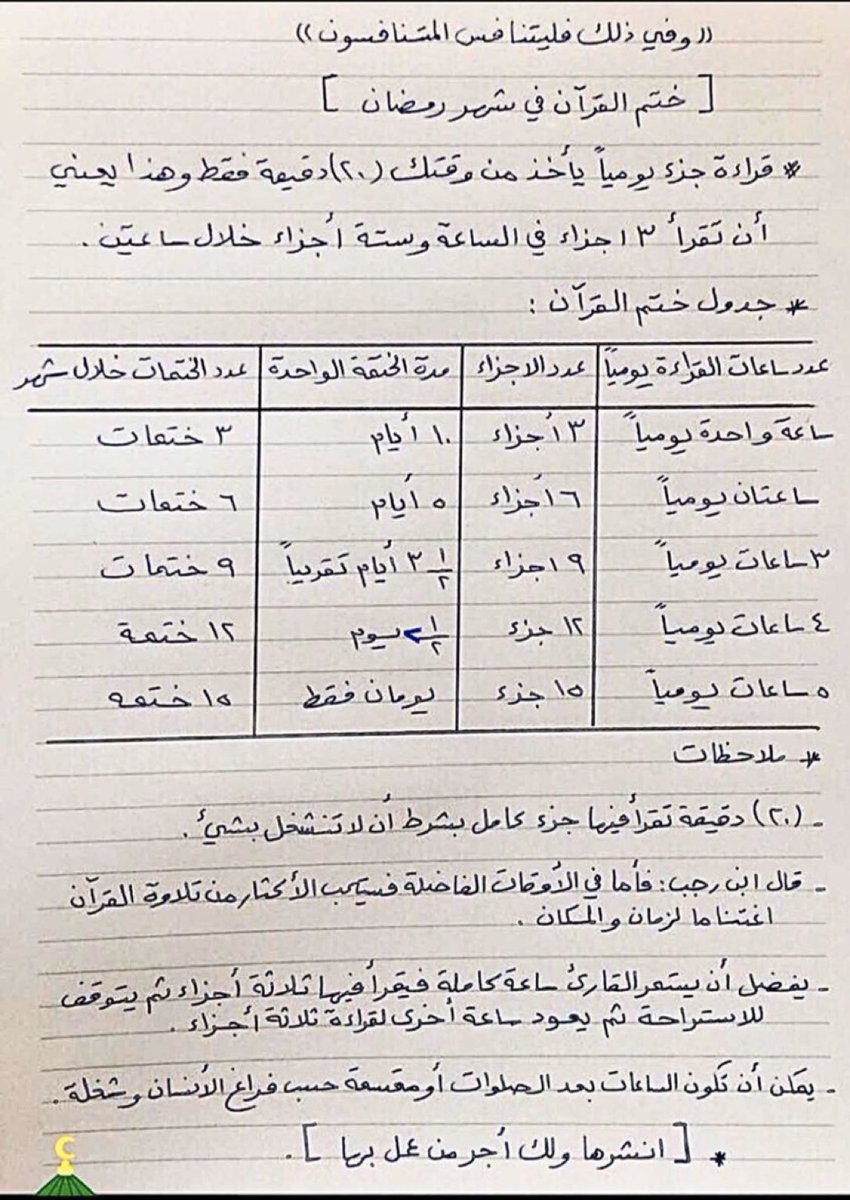 ((وفي ذلك فليتنافس المتنافسون))
[ ختم القرآن في شهر رمضان ]
* قراءة جزء يومياً يأخذ من وقتك (٢٠) دقيقة فقط وهذا يعني
أن تقرأ ٣ اجزاء في الساعة وستة أجزاء خلال ساعتين .
* جدول ختم القرآن :
عدد ساعات القراءة يومياً | عدد الاجزاء | مدة الختمة الواحدة | عدد الختمات خلال شهر
ساعة واحدة يومياً | ٣ أجزاء | ١٠ أيام | ٣ ختمات
ساعتان يومياً | ٦ أجزاء | ٥ أيام | ٦ ختمات
٣ ساعات يومياً | ٩ اجزاء | ٣ ١/٢ أيام تقريباً | ٩ ختمات
٤ ساعات يومياً | ١٢ جزء | ٢ ١/٢ يوم | ١٢ ختمة
٥ ساعات يومياً | ١٥ جزء | يومان فقط | ١٥ ختمه
* ملاحظات
- (٢٠) دقيقة تقرأ فيها جزء كامل بشرط أن لا تنشغل بشيئ .
- قال ابن رجب : فأما في الأوقات الفاضلة فسيتحب الأكثار من تلاوة القرآن
اغتناما لزمان والمكان .
- يفضل أن يستمر القارئ ساعة كاملة فيقرأ فيها ثلاثة أجزاء ثم يتوقف
للاستراحة ثم يعود ساعة أخرى لقراءة ثلاثة أجزاء .
- يمكن أن تكون الساعات بعد الصلوات أو مقسمة حسب فراغ الأنسان وشغلة .
* [ انشرها ولك أجر من عمل بها ] .